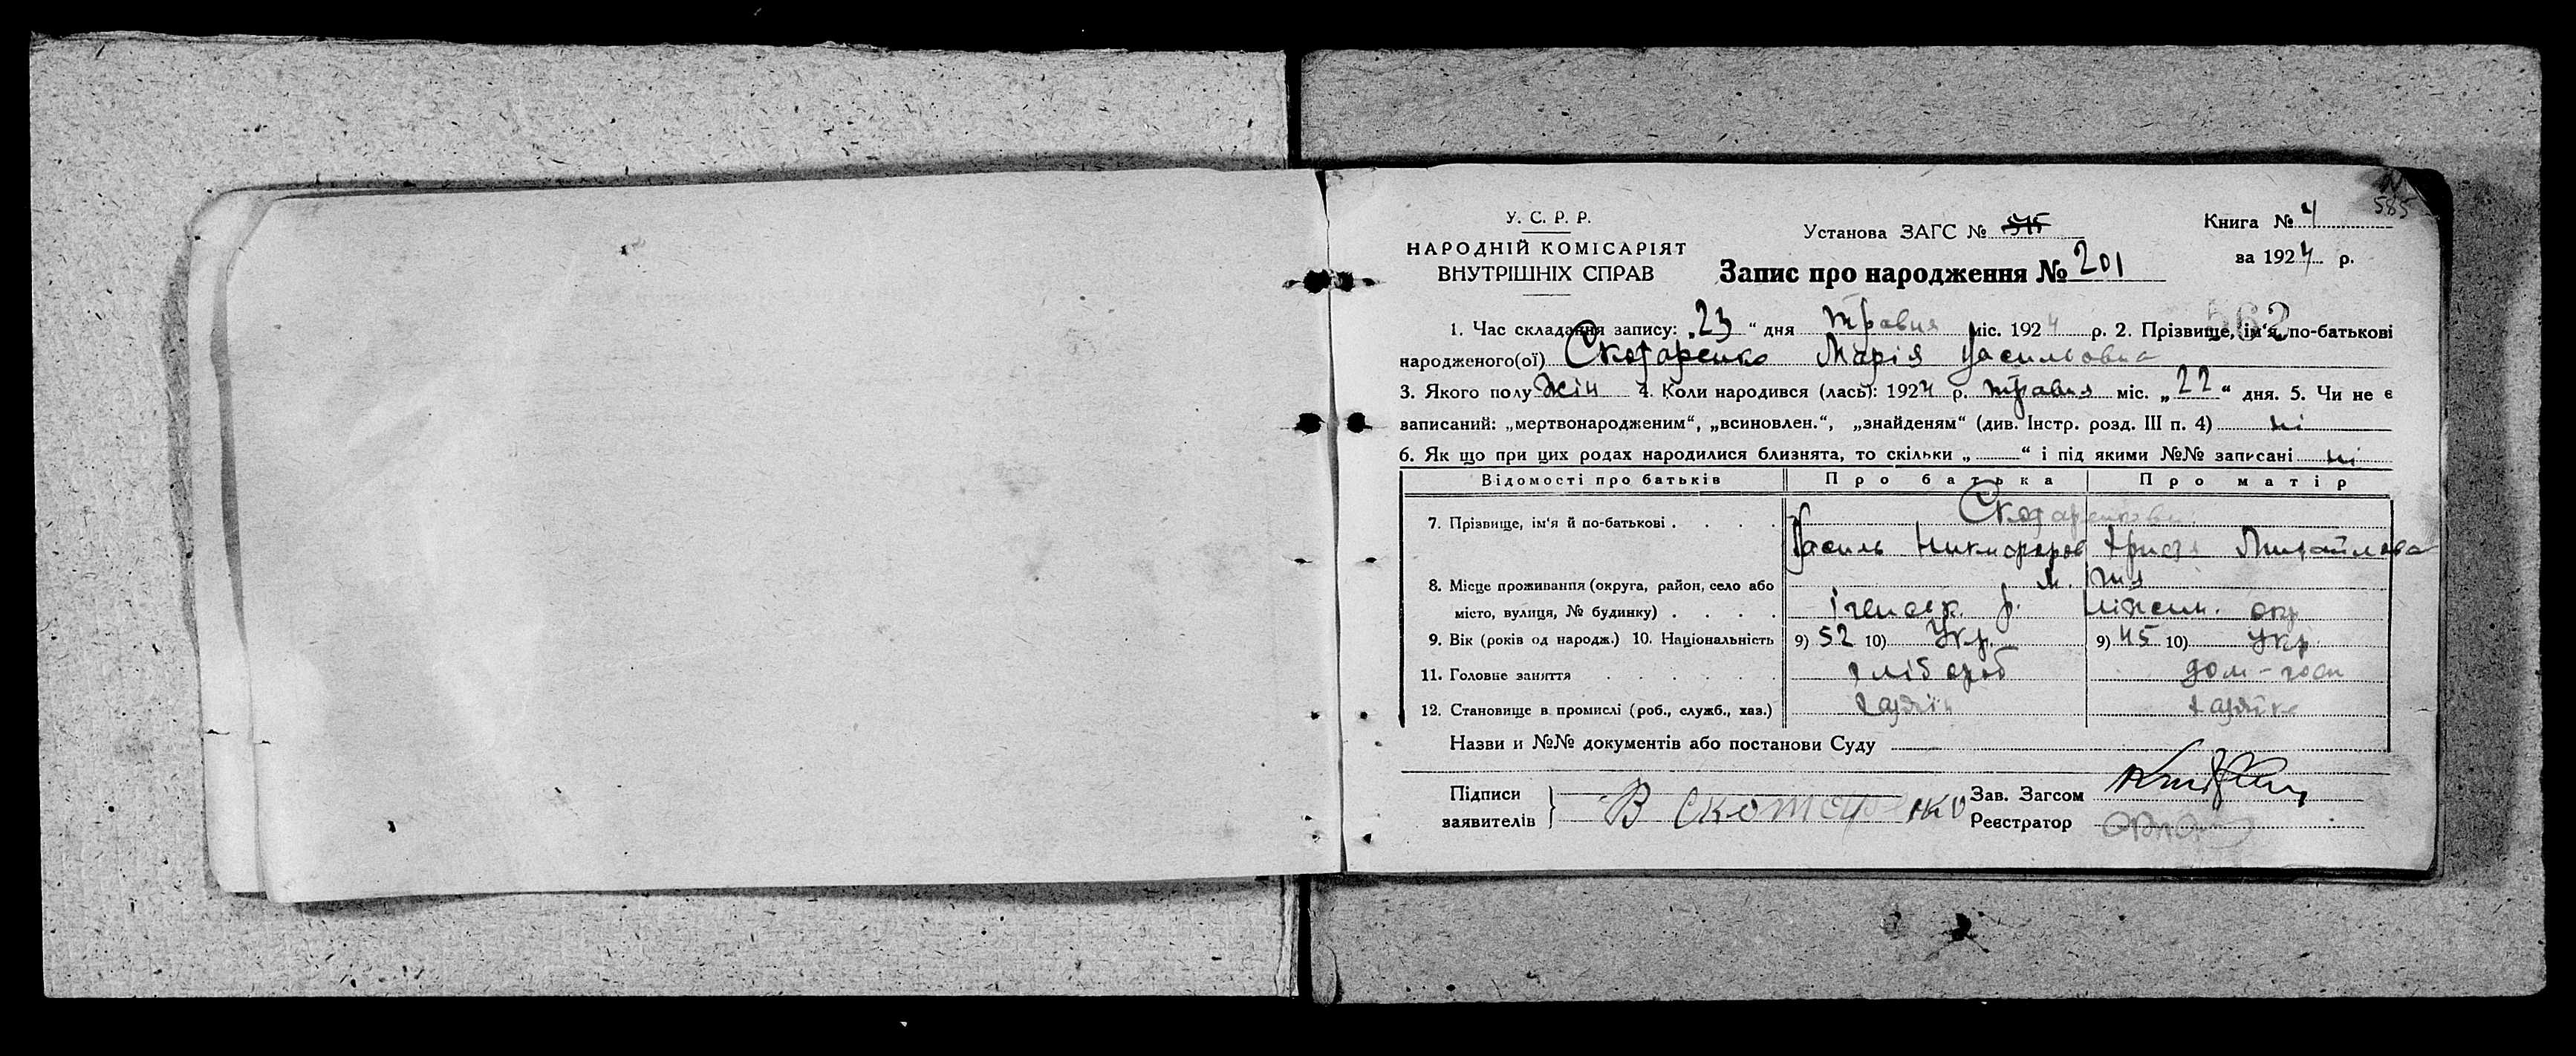 585
У. С. Р. Р.
НАРОДНІЙ КОМІСАРІЯТ
ВНУТРІШНІХ СПРАВ
Установа ЗАГС №
Запис про народження № 201
Книга № 4
за 1924 р.
562
1. Час складання запису: „23“ дня травня міс. 1924 р. 2. Прізвище, ім'я, по-батькові
народженого(ої) Скотаренко Марія Васильовна
3. Якого полу жін 4. Коли народився (лась): 1924 р. травня міс. „22“ дня. 5. Чи не є
записаний: „мертвонародженим“, „всиновлен.“, „знайденям“ (див. Інстр. розд. III п. 4) ні
6. Як що при цих родах народилися близнята, то скільки „ “ і під якими №№ записані ні
Відомості про батьків Про батька Про матір
7. Прізвище, ім'я й по-батькові Скотаренкови
Василь Никифоров Христя Михайлова
8. Місце проживання (округа, район, село або м.
місто, вулиця, № будинку) Іченськ. р. Ніжен. окр
9. Вік (років од народж.) 10. Національність 9) 52 10) Укр. 9) 45 10) Укр.
11. Головне заняття хлібороб дом-госп
12. Становище в промислі (роб., служб., хаз.) хазяїн хазяйка
Назви и №№ документів або постанови Суду
Підписи
заявителів
В Скотаренко
Зав. Загсом
Реєстратор